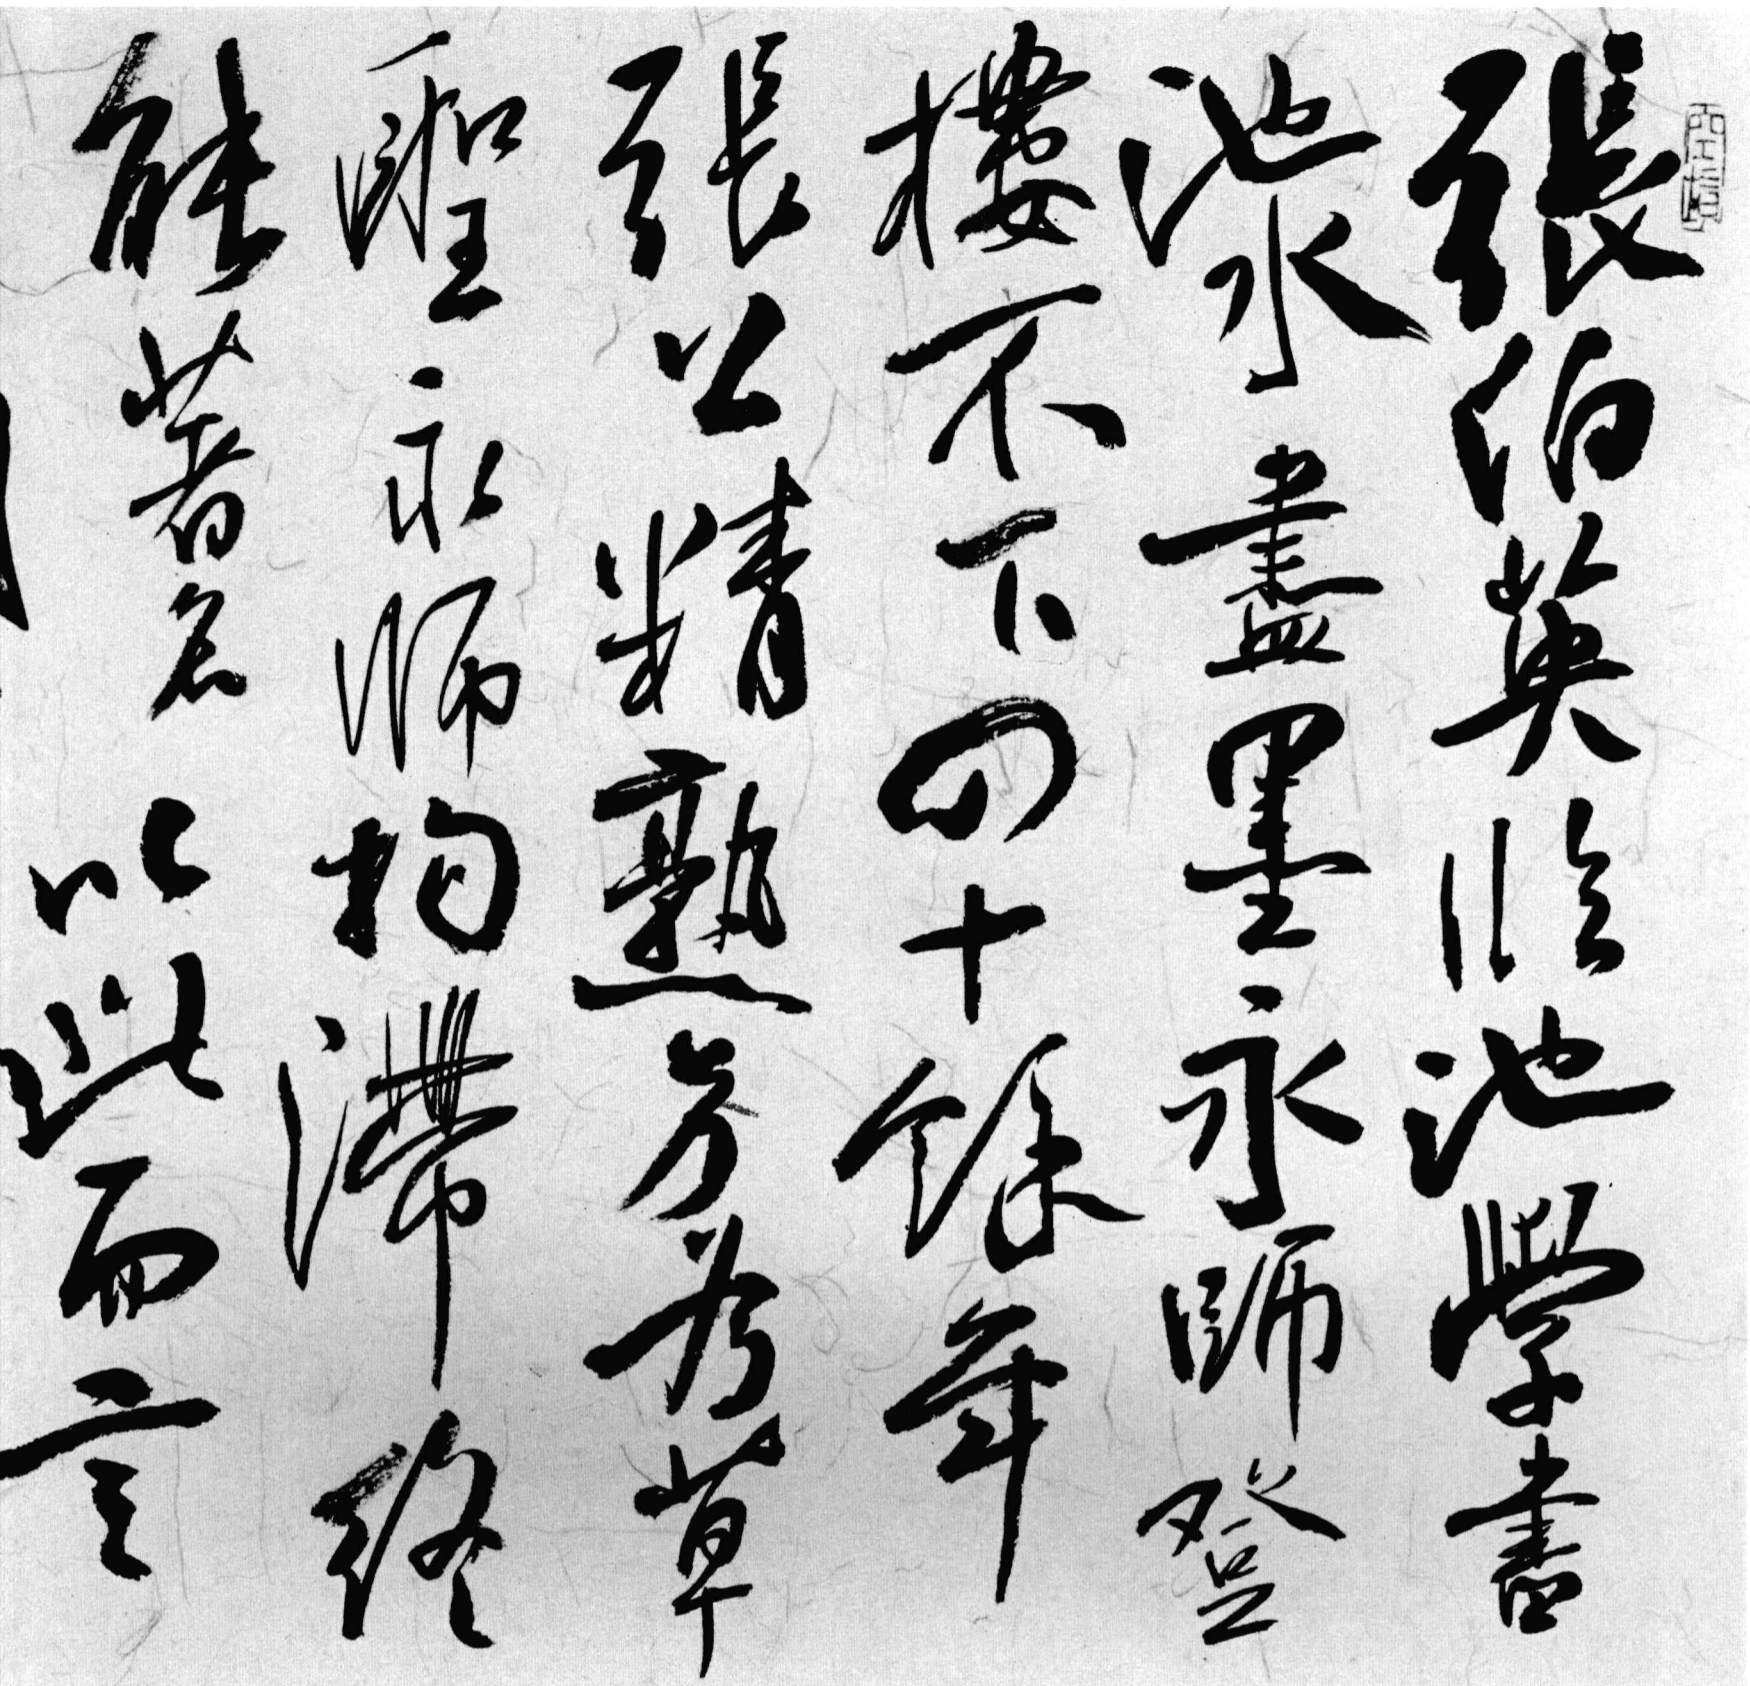 張伯英臨池學書
池水盡墨永師登
樓不下四十餘年
張公精熟方為草
聖永師拘滯終
能著名以此而言